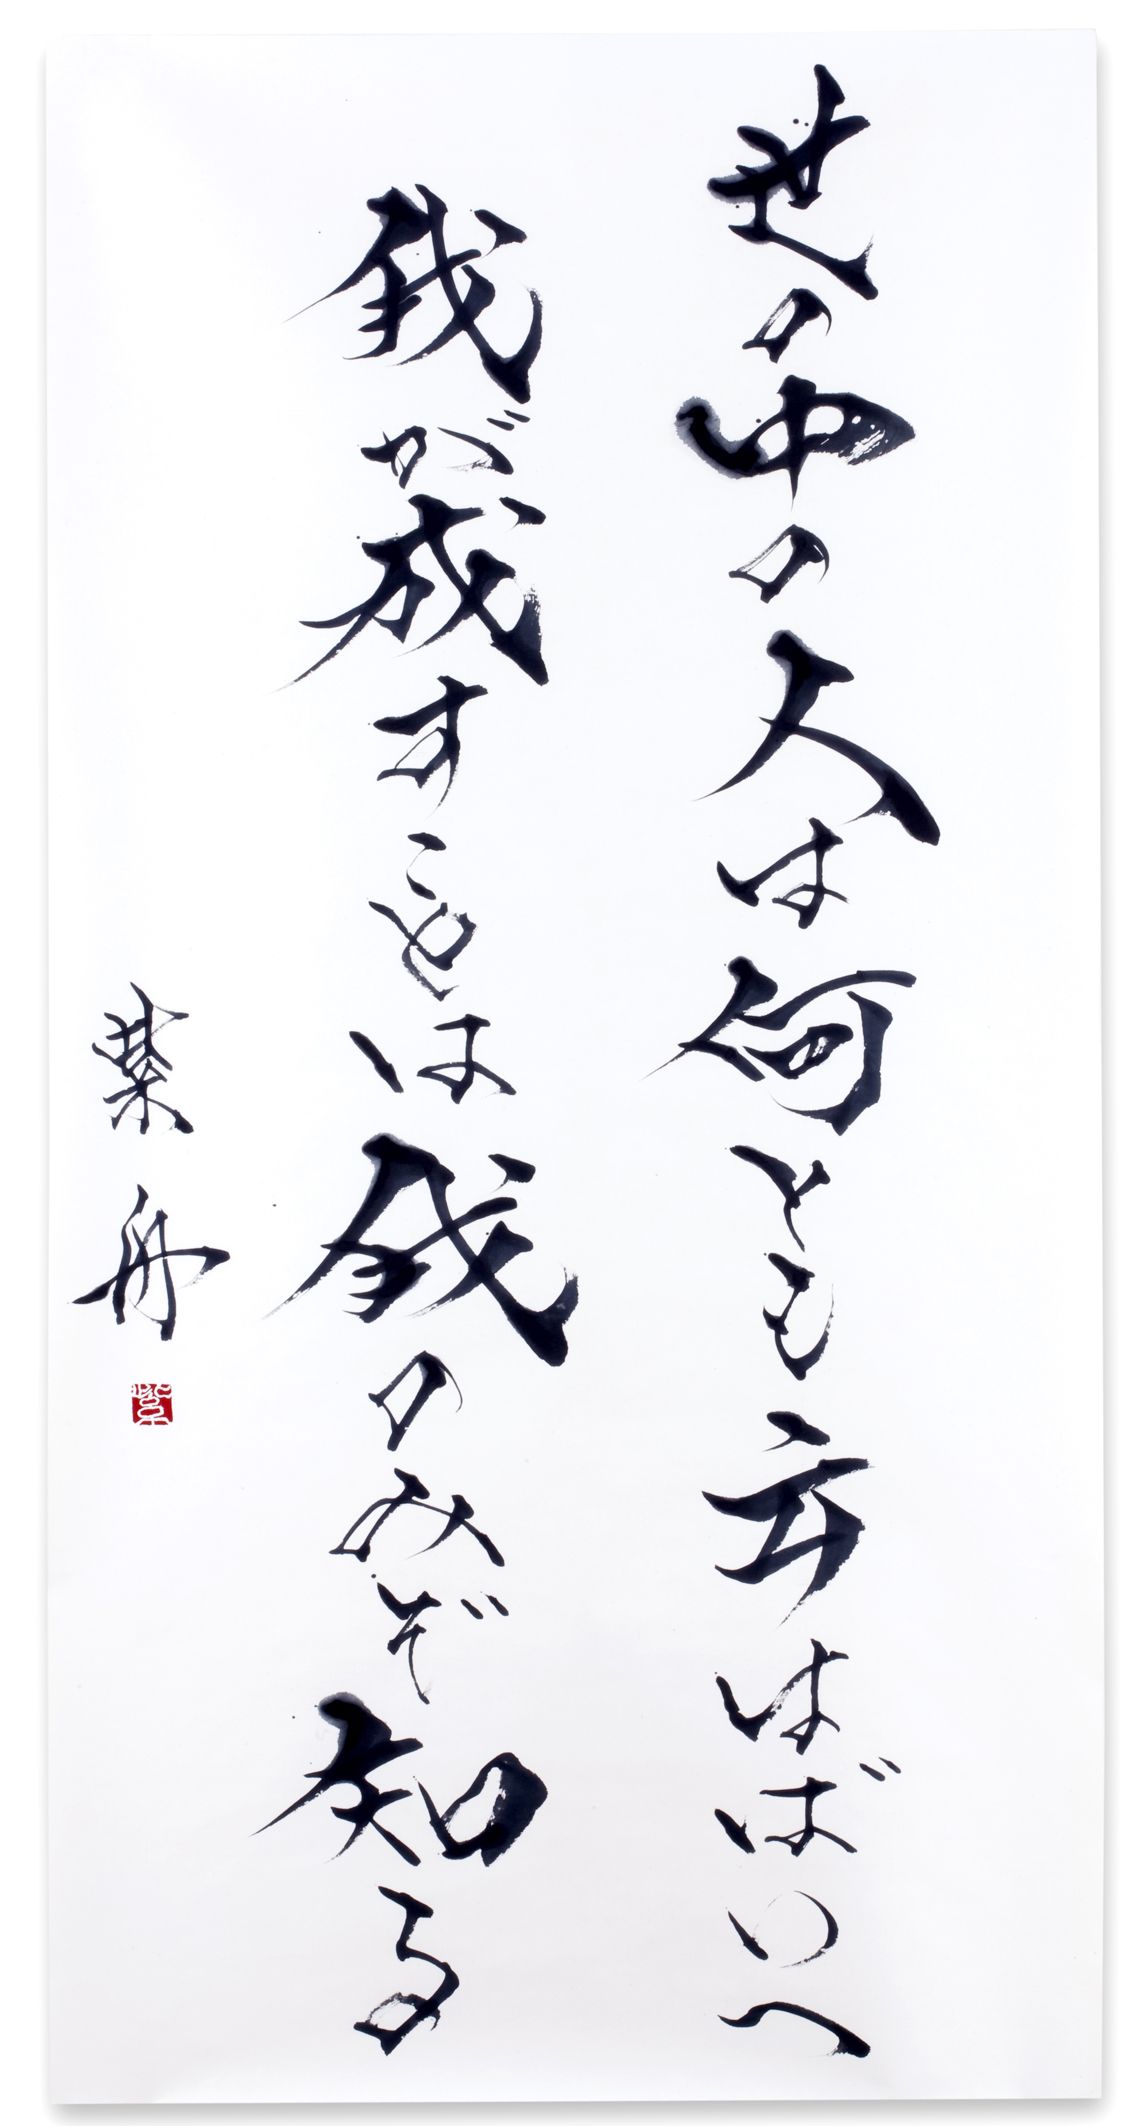 世の中の人は何とも云はばいへ
我が成すことは我のみぞ知る
紫舟
紫